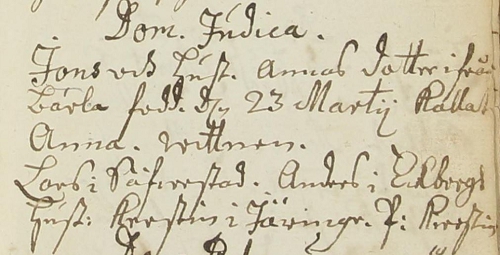 Dom. Judica.
Jons och Hust. Annas dotter ifrån
Bärla född. d. 23 Martij kallat
Anna. wittnen.
Lars i Säfwestad. Anders i Ekborg
Hust: Kerstin i Järinge. P: Kerstin